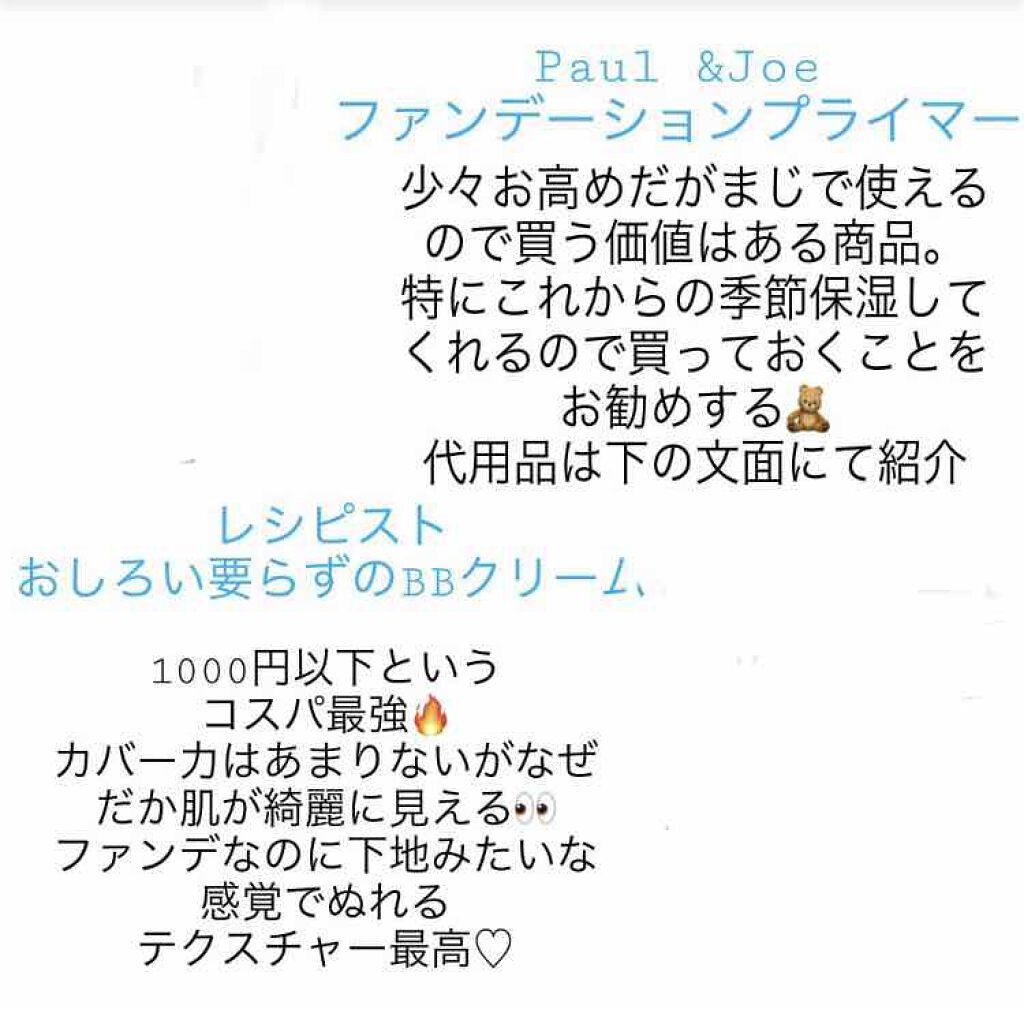 Paul &Joe
ファンデーションプライマー
少々お高めだがまじで使える
ので買う価値はある商品。
特にこれからの季節保湿して
くれるので買っておくことを
お勧めする🧸
代用品は下の文面にて紹介
レシピスト
おしろい要らずのBBクリーム、
1000円以下という
コスパ最強🔥
カバー力はあまりないがなぜ
だか肌が綺麗に見える👀
ファンデなのに下地みたいな
感覚でぬれる
テクスチャー最高♡